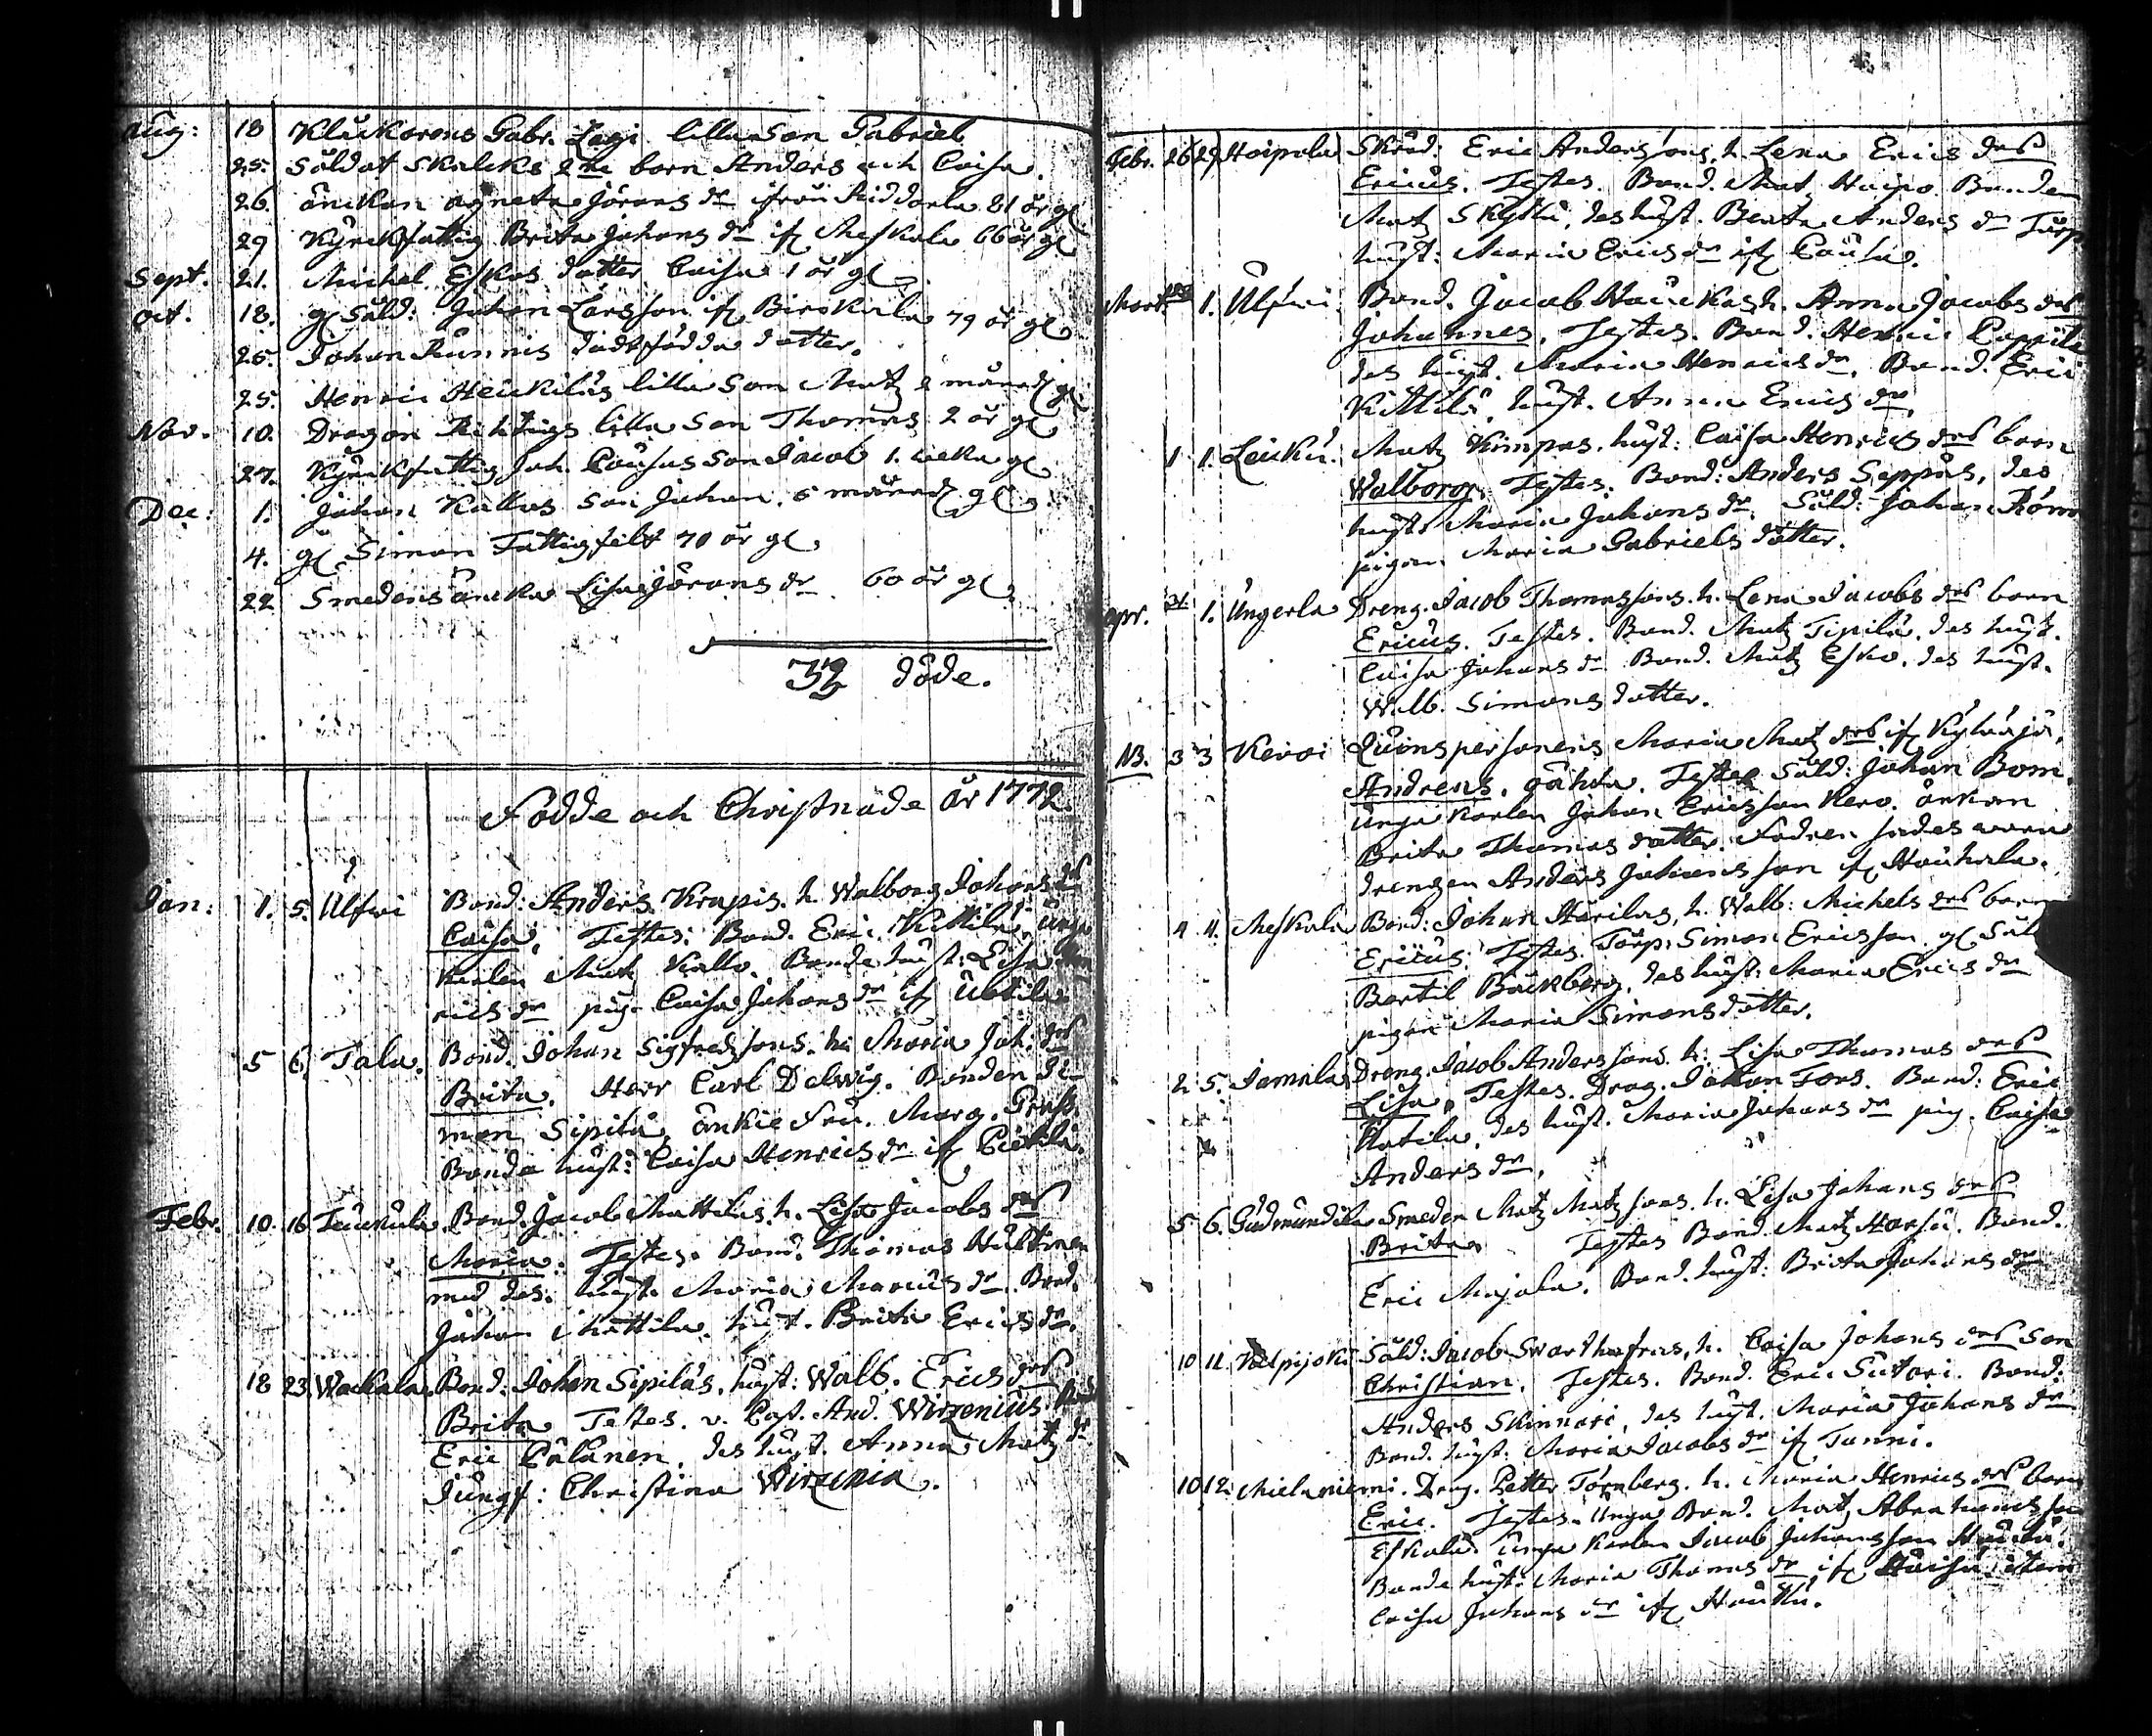 Aug: 18 Klåckarens Gabr. Lagi lilla Son Gabriel
25. Soldat Skalcks 2ne barn Anders och Caisa.
26. änckan Agneta Jörans dr ifrån Riddarla 81 år gl
29 Kyrckfattig Brita Johans dr if Meskala 66 år gl
Sept. 21. Michel Eskos dotter Caisa 1 år gl
Oct. 18. gl Sold: Johan Larsson if Birckala 79 år gl
25. Johan Runnis dödfödda dotter.
25. Henric Heickiläs lilla Son Matz 2 månad gl
Nov. 10. Dragon lilla Son Thomas 2 år gl
27. Kyrckfattig Joh. Cousas Son Jacob 1. wecka gl
Dec: 1. Johan Kallos Son Johan. 5 månad gl
4. gl Simon Fattigfelt 70 år gl
22 Smedens äncka Lisa Jörans dr 60 år gl
döde.
Födde och Christnade år 1772.
Jan: 1. 5. Ulfwi Bond: Anders Krapis h. Walborg Johans drs
Caisa. Testes: Bond. Eric Kittilä, unga
Karlen Matz Kallo. Bonde hust: Lisa
rics dr pig. Caisa Johans dr if Uotila
5 6. Tala. Bond. Johan Sigfredssons. h. Maria Joh: drs
Brita. Herr Carl Delwig. Bonden Si-
mon Sipilä, änkie Fru. Marg.
Bonde hust: Caisa Henrics dr if Cietilä.
Febr. 10. 16 Bond. Jacob Mattilas, h. Lisa Jacobs drs
Maria. Testes. Bond. Thomas Hultman
med des hust. Maria Marcus dr. Bond.
Johan Mattila. hust. Brita Erics dr.
18 23. Wackala. Bond: Johan Sipiläs, hust: Walb. Erics drs
Brita Testes. v. Past. And. Wirzenius Bond
Eric Pålanen, des hust. Anna Matz dr
Jungf: Christina Wirzenia.
Febr. 26 29 Haipola Skräd: Eric Anderssons, h. Lena Erics drs
Ericus. Testes. Bond. Matz Haipo. Bonden
Matz Skyttä, des hust. Beata Anders dr Torp
hust: Maria Erics dr if Cousa.
Mart. 1. Ulfwi Bond. Jacob Hauckas h. Anna Jacobs drs
Johannes. Testes. Bond. Henric
des hust. Maria Henrics dr. Bond. Eric
Kittilä, hust. Anna Erics dr
1 1. Leucku. Matz Kimpas. hust: Caisa Henrics drs barn
Walborg. Testes. Bond: Anders Seppäs, des
hust. Maria Johans dr. Sold: Johan
pigan Maria Gabriels dotter.
Apr. 31 1. Ungerla Dreng. Jacob Thomassons. h. Lena Jacobs drs barn
Ericus. Testes. Bond. Matz Sipilä. des hust.
Caisa Johans dr Bond. Matz Esko. des hust.
Walb. Simons dotter.
NB. 3 3 Keroi Löonspersonens Maria Matz drs if
Andreas. oächta. Testes Sold: Johan Bom.
unga Karlen Johan Ericsson Kero. änkan
Brita Thomas dotter. Fadren sades wara
drengen Anders Johansson if Houhala.
4 4. Meskala Bond: Johan Harilas, h. Walb: Michels drs barn
Ericus. Testes. Torp: Simon Ericsson. gl Sol
Bertil Bäckberg, des hust: Maria Erics dr
pigan Maria Simons dotter.
2. 5. Jamala Dreng. Jacob Anderssons. h. Lisa Thomas drs
Lisa. Testes. Drag. Johan Fors. Bond: Eric
Uotila, des hust. Maria Johans dr pig. Caisa
Anders dr.
5 6. Gudmundila Smeden Matz Matzsons. h. Lisa Johans drs
Brita. Testes Bond. Matz Hansu. Bond.
Eric Majala. Bond. hust: Brita Johans dr
10 11 Walpijoki Sold: Jacob h. Caisa Johans drs Son
Christian. Testes. Bond. Eric Sutari. Bond.
Anders Skinnari, des hust. Maria Johans dr
Bond. hust. Maria Jacobs dr if Tanni.
10 12. Mielaniemi. Drag. Petter Törnberg. h. Maria Henrics drs barn
Eric. Testes. Unga Bond. Matz Abrahamsson
Eskola. unga Karlen Jacob Johansson
Bonde hust: Maria Thomas dr if item
Caisa Johans dr if Houkku.